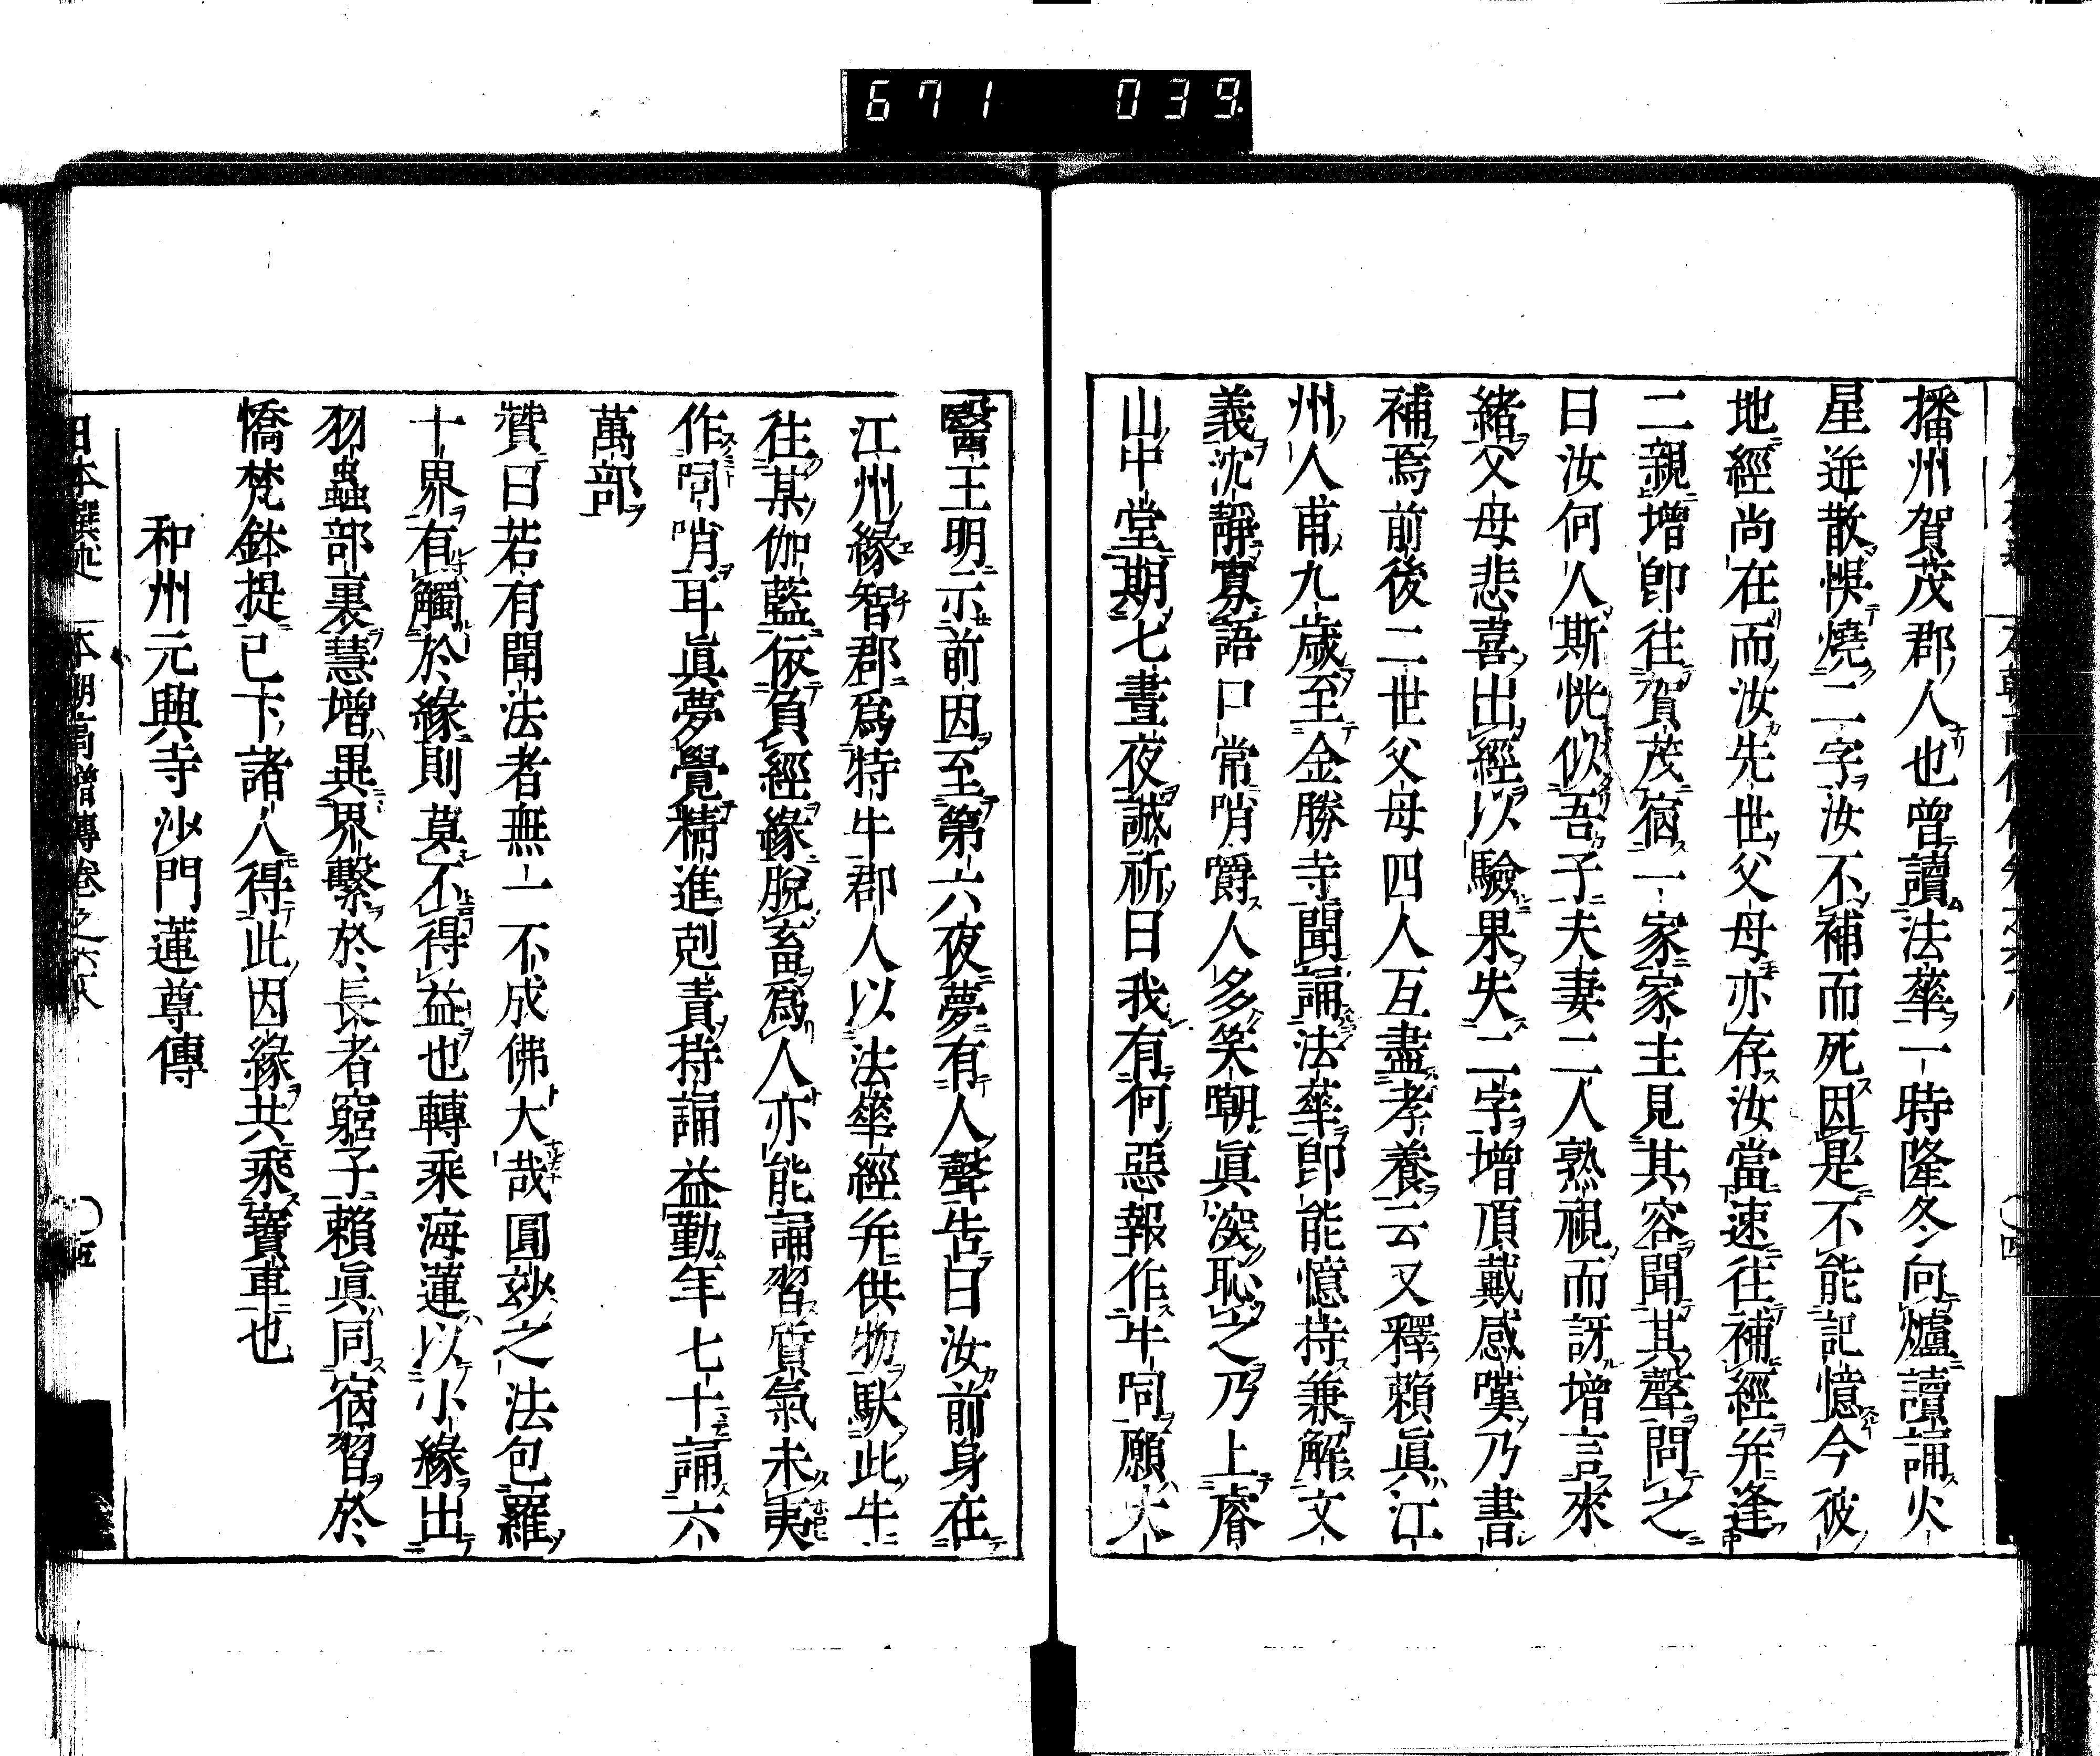 671 039
播州賀茂郡人也曾讀法華一時隆冬向爐讀誦火
星迸散悞燒二字汝不補而死因是不能記憶今彼
地經尚在而汝先世父母亦存汝當速往補經并逢
二親增卽往賀茂宿一家家主見其容聞其聲問之
曰汝何人斯恍似吾子夫妻二人熟視而訝增言來
緒父母悲喜出經以驗果失二字增頂戴感嘆乃書
補焉前後二世父母四人互盡孝養云又釋賴眞江
州人甫九歲至金勝寺聞誦法華卽能憶持兼解文
義沈靜寡語口常哨嚼人多笑嘲眞深恥之乃上睿
山中堂期七晝夜誠祈曰我有何惡報作牛呞願大
醫王明示前因至第六夜夢有人聲告曰汝前身在
江州緣智郡爲特牛郡人以法華經并供物馱此牛
往某伽藍依負經緣脫畜爲人亦能誦習賃氣未夷
作呞哨耳眞夢覺精進剋責持誦益勤年七十誦六
萬部
贊曰若有聞法者無一不成佛大哉圓玅之法包羅
十界有觸於緣則莫不得益也轉乘海蓮以小緣出
羽蟲部裏慧增異界繫於長者窮子賴眞同宿習於
憍梵鉢提已下諸人得此因緣共乘寶車也
和州元興寺沙門蓮尊傳
日本撰述 本朝高僧傳卷之六十八 〇五